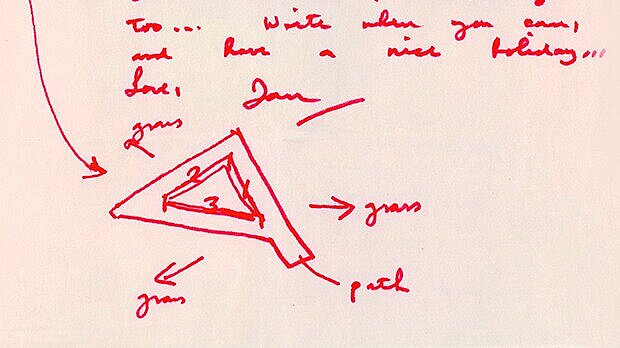 too... Write when you can,
and have a nice holiday...
Love,
grass
2
3
grass
grass
path